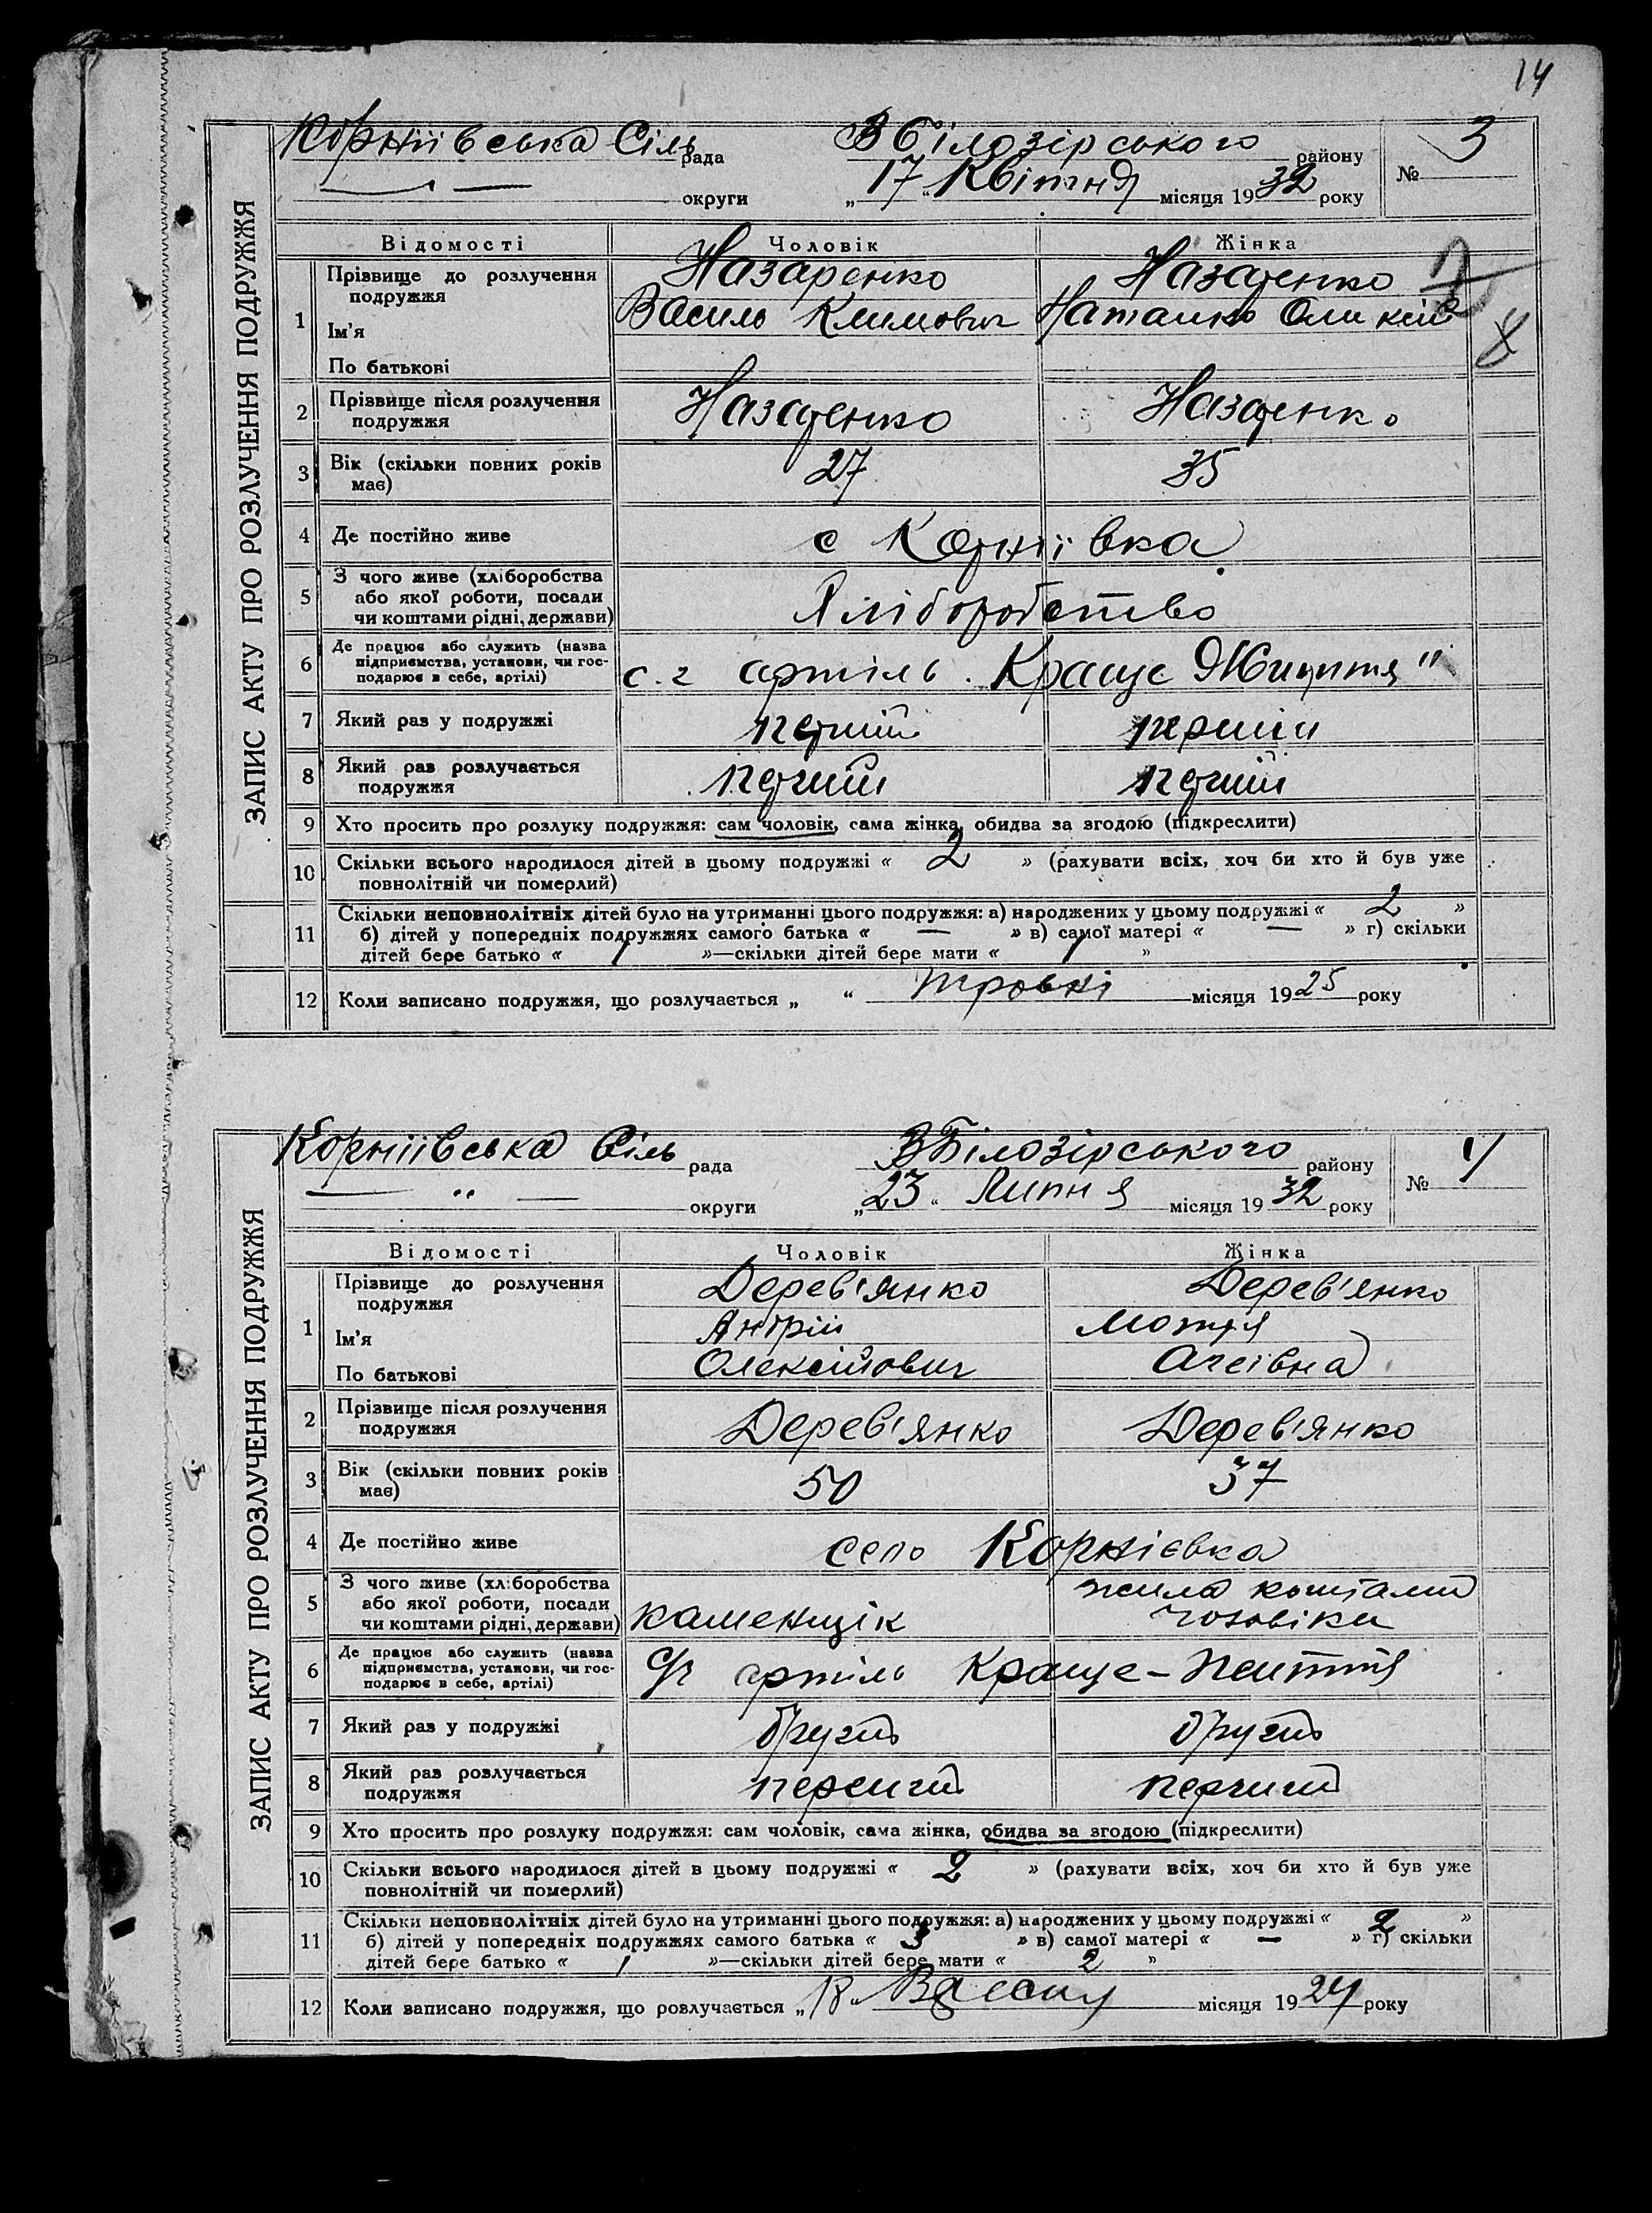 14
Корніївська Сіль рада ВБілозірського району № 3
округи „17“ Квітня місяця 1932 року
ЗАПИС АКТУ ПРО РОЗЛУЧЕННЯ ПОДРУЖЖЯ
Відомості Чоловік Жінка
1 Прізвище до розлучення подружжя Назаренко Назаренко
Ім'я Василь Климович Наталка
По батькові
2 Прізвище після розлучення подружжя Назаренко Назаренко
3 Вік (скільки повних років має) 27 35
4 Де постійно живе с Корніївка
5 З чого живе (хліборобства
або якої роботи, посади
чи коштами рідні, держави) Хліборобство
6 Де працює або служить (назва
підприємства, установи, чи гос-
подарює в себе, артілі) с.г артіль „Краще Життя"
7 Який раз у подружжі перший перший
8 Який раз розлучається
подружжя перший перший
9 Хто просить про розлуку подружжя: сам чоловік, сама жінка, обидва за згодою (підкреслити)
10 Скільки всього народилося дітей в цьому подружжі « 2 » (рахувати всіх, хоч би хто й був уже
повнолітній чи померлий)
11 Скільки неповнолітніх дітей було на утриманні цього подружжя: а) народжених у цьому подружжі « 2 »
б) дітей у попередніх подружжях самого батька « — » в) самої матері « — » г) скільки
дітей бере батько « 1 »—скільки дітей бере мати « 1 »
12 Коли записано подружжя, що розлучається „ “ місяця 1925 року
Корніївська Сіль рада ВБілозірського району № 4
— " — округи „23“ Липня місяця 1932 року
ЗАПИС АКТУ ПРО РОЗЛУЧЕННЯ ПОДРУЖЖЯ
Відомості Чоловік Жінка
1 Прізвище до розлучення
подружжя Дерев'янко Дерев'янко
Ім'я Андрій Мотря
По батькові Олексійович
2 Прізвище після розлучення
подружжя Дерев'янко Дерев'янко
3 Вік (скільки повних років
має) 50 37
4 Де постійно живе село Корнієвка
5 З чого живе (хліборобства
або якої роботи, посади
чи коштами рідні, держави) каменщік жила коштами чоловіка
6 Де працює або служить (назва
підприємства, установи, чи гос-
подарює в себе, артілі) с/г артіль Краще-Життя
7 Який раз у подружжі другий другий
8 Який раз розлучається
подружжя перший перший
9 Хто просить про розлуку подружжя: сам чоловік, сама жінка, обидва за згодою (підкреслити)
10 Скільки всього народилося дітей в цьому подружжі « 2 » (рахувати всіх, хоч би хто й був уже
повнолітній чи померлий)
11 Скільки неповнолітніх дітей було на утриманні цього подружжя: а) народжених у цьому подружжі « 2 »
б) дітей у попередніх подружжях самого батька « 3 » в) самої матері « — » г) скільки
дітей бере батько « 1 »—скільки дітей бере мати « 2 »
12 Коли записано подружжя, що розлучається місяця 1924 року